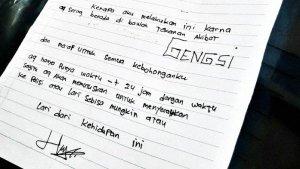 Kenapa aku melakukan ini karna
aq sering berada di bawah Tekanan Akibat
GENGSI
dan maaf untuk semua kebohonganku
aq hanya punya waktu ± 24 jam dengan waktu
segitu aq akan memutuskan untuk menyerahkan
ke Polisi atau lari sebisa mungkin atau
lari dari kehidupan ini